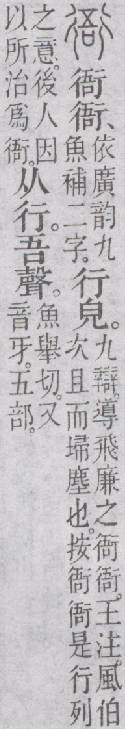 衙 衙衙、依廣韵九
魚補二字。行皃。九辯。導飛廉之衙衙。王注。風伯
次且而埽塵也。按衙衙是行列
之意。後人因
以所治爲衙。从行。吾聲。魚舉切。又
音牙。五部。